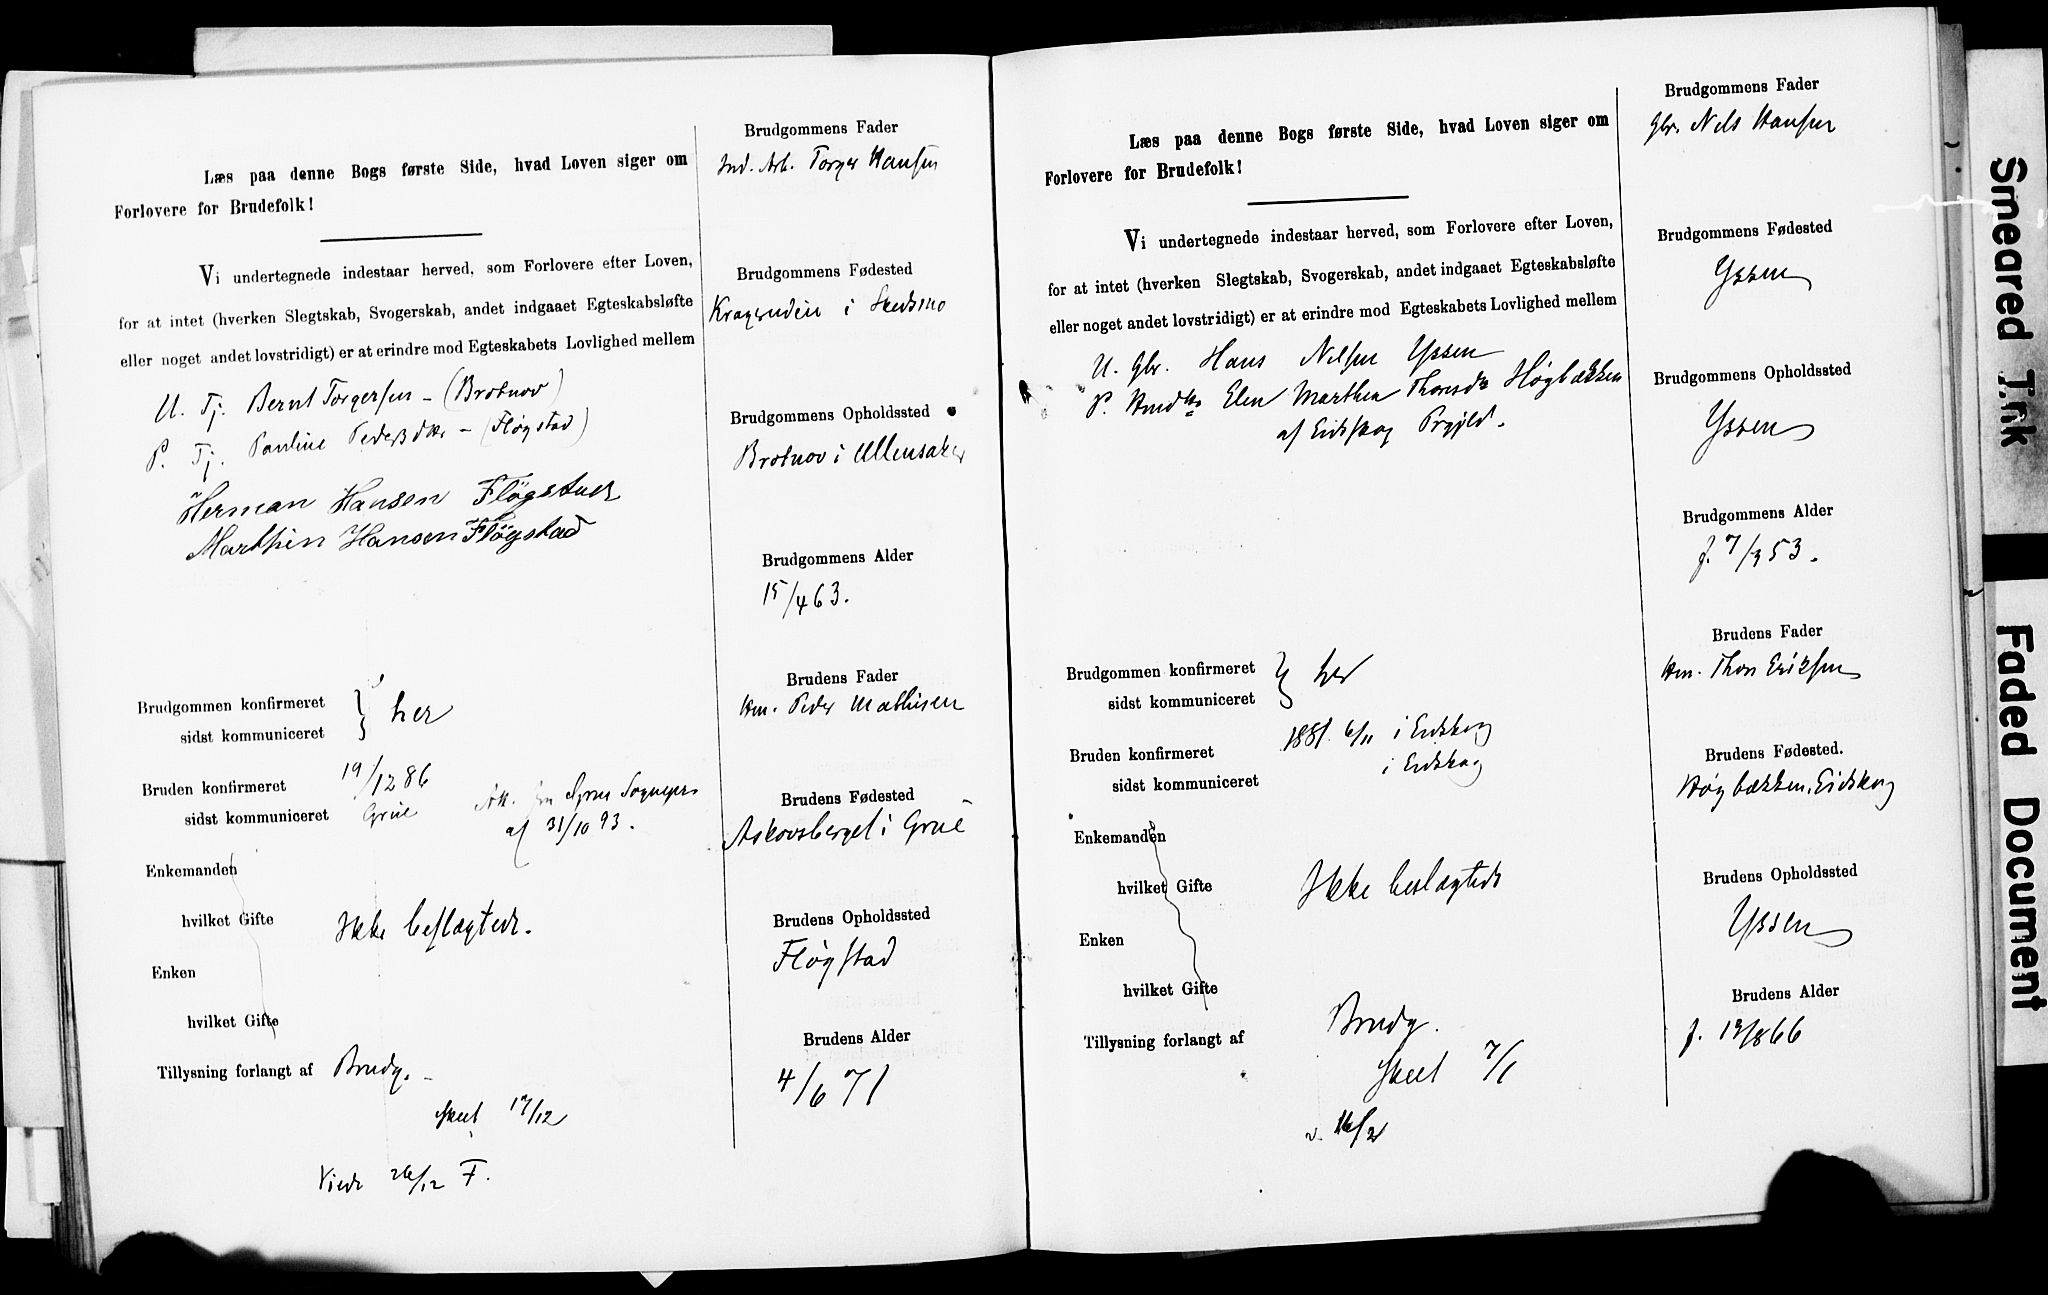 Læs paa denne Bogs første Side, hvad Loven siger om
Forlovere for Brudefolk!
Vi undertegnede indestaar herved, som Forlovere efter Loven,
for at intet (hverken Slegtskab, Svogerskab, andet indgaaet Egteskabsløfte
eller noget andet lovstridigt) er at erindre mod Egteskabets Lovlighed mellem
U. Tj. Bernt Torgersen - (Brotnov)
P. Tj. Pauline Pedersdtr - (Fløgstad)
Herman Hansen Fløgstad
Marthin Hansen Fløgstad
Brudgommen konfirmeret
sidst kommuniceret } her
Bruden konfirmeret 19/12 86
sidst kommuniceret Grue
Att. fra Grue Sognepr.
af 31/10 93.
Enkemanden
hvilket Gifte
Ikke beslægtede.
Enken
hvilket Gifte
Tillysning forlangt af Brudg. -
Skeet 17/12
Viede 26/12 F.
Brudgommens Fader
Ind. Arb. Torger Hansen
Brudgommens Fødested
Kragerudeie i Skedsmo
Brudgommens Opholdssted
Brotnov i Ullensaker
Brudgommens Alder
15/4 63.
Brudens Fader
Hm. Peder Mathisen
Brudens Fødested
Askovsberget i Grue
Brudens Opholdssted
Fløgstad
Brudens Alder
4/6 71
Læs paa denne Bogs første Side, hvad Loven siger om
Forlovere for Brudefolk!
Vi undertegnede indestaar herved, som Forlovere efter Loven,
for at intet (hverken Slegtskab, Svogerskab, andet indgaaet Egteskabsløfte
eller noget andet lovstridigt) er at erindre mod Egteskabets Lovlighed mellem
U. Gbr. Hans Nilsen Yssen
P. Elen Marthea Thorsdtr Høgbækken
af Eidskog Prgjld.
Brudgommen konfirmeret
sidst kommuniceret } her
Bruden konfirmeret 1881 6/11 i Eidskog
sidst kommuniceret i Eidskog
Enkemanden
hvilket Gifte
Ikke beslægtede
Enken
hvilket Gifte
Tillysning forlangt af Brudg.
Skeet 7/1
v. 16/2
Brudgommens Fader
Gbr. Nils Hansen
Brudgommens Fødested
Yssen
Brudgommens Opholdssted
Yssen
Brudgommens Alder
f. 7/3 53.
Brudens Fader
Hm. Thor Eriksen
Brudens Fødested.
Høgbækken, Eidskog
Brudens Opholdssted
Yssen
Brudens Alder
f. 13/8 66
Smeared Ink
Faded Document